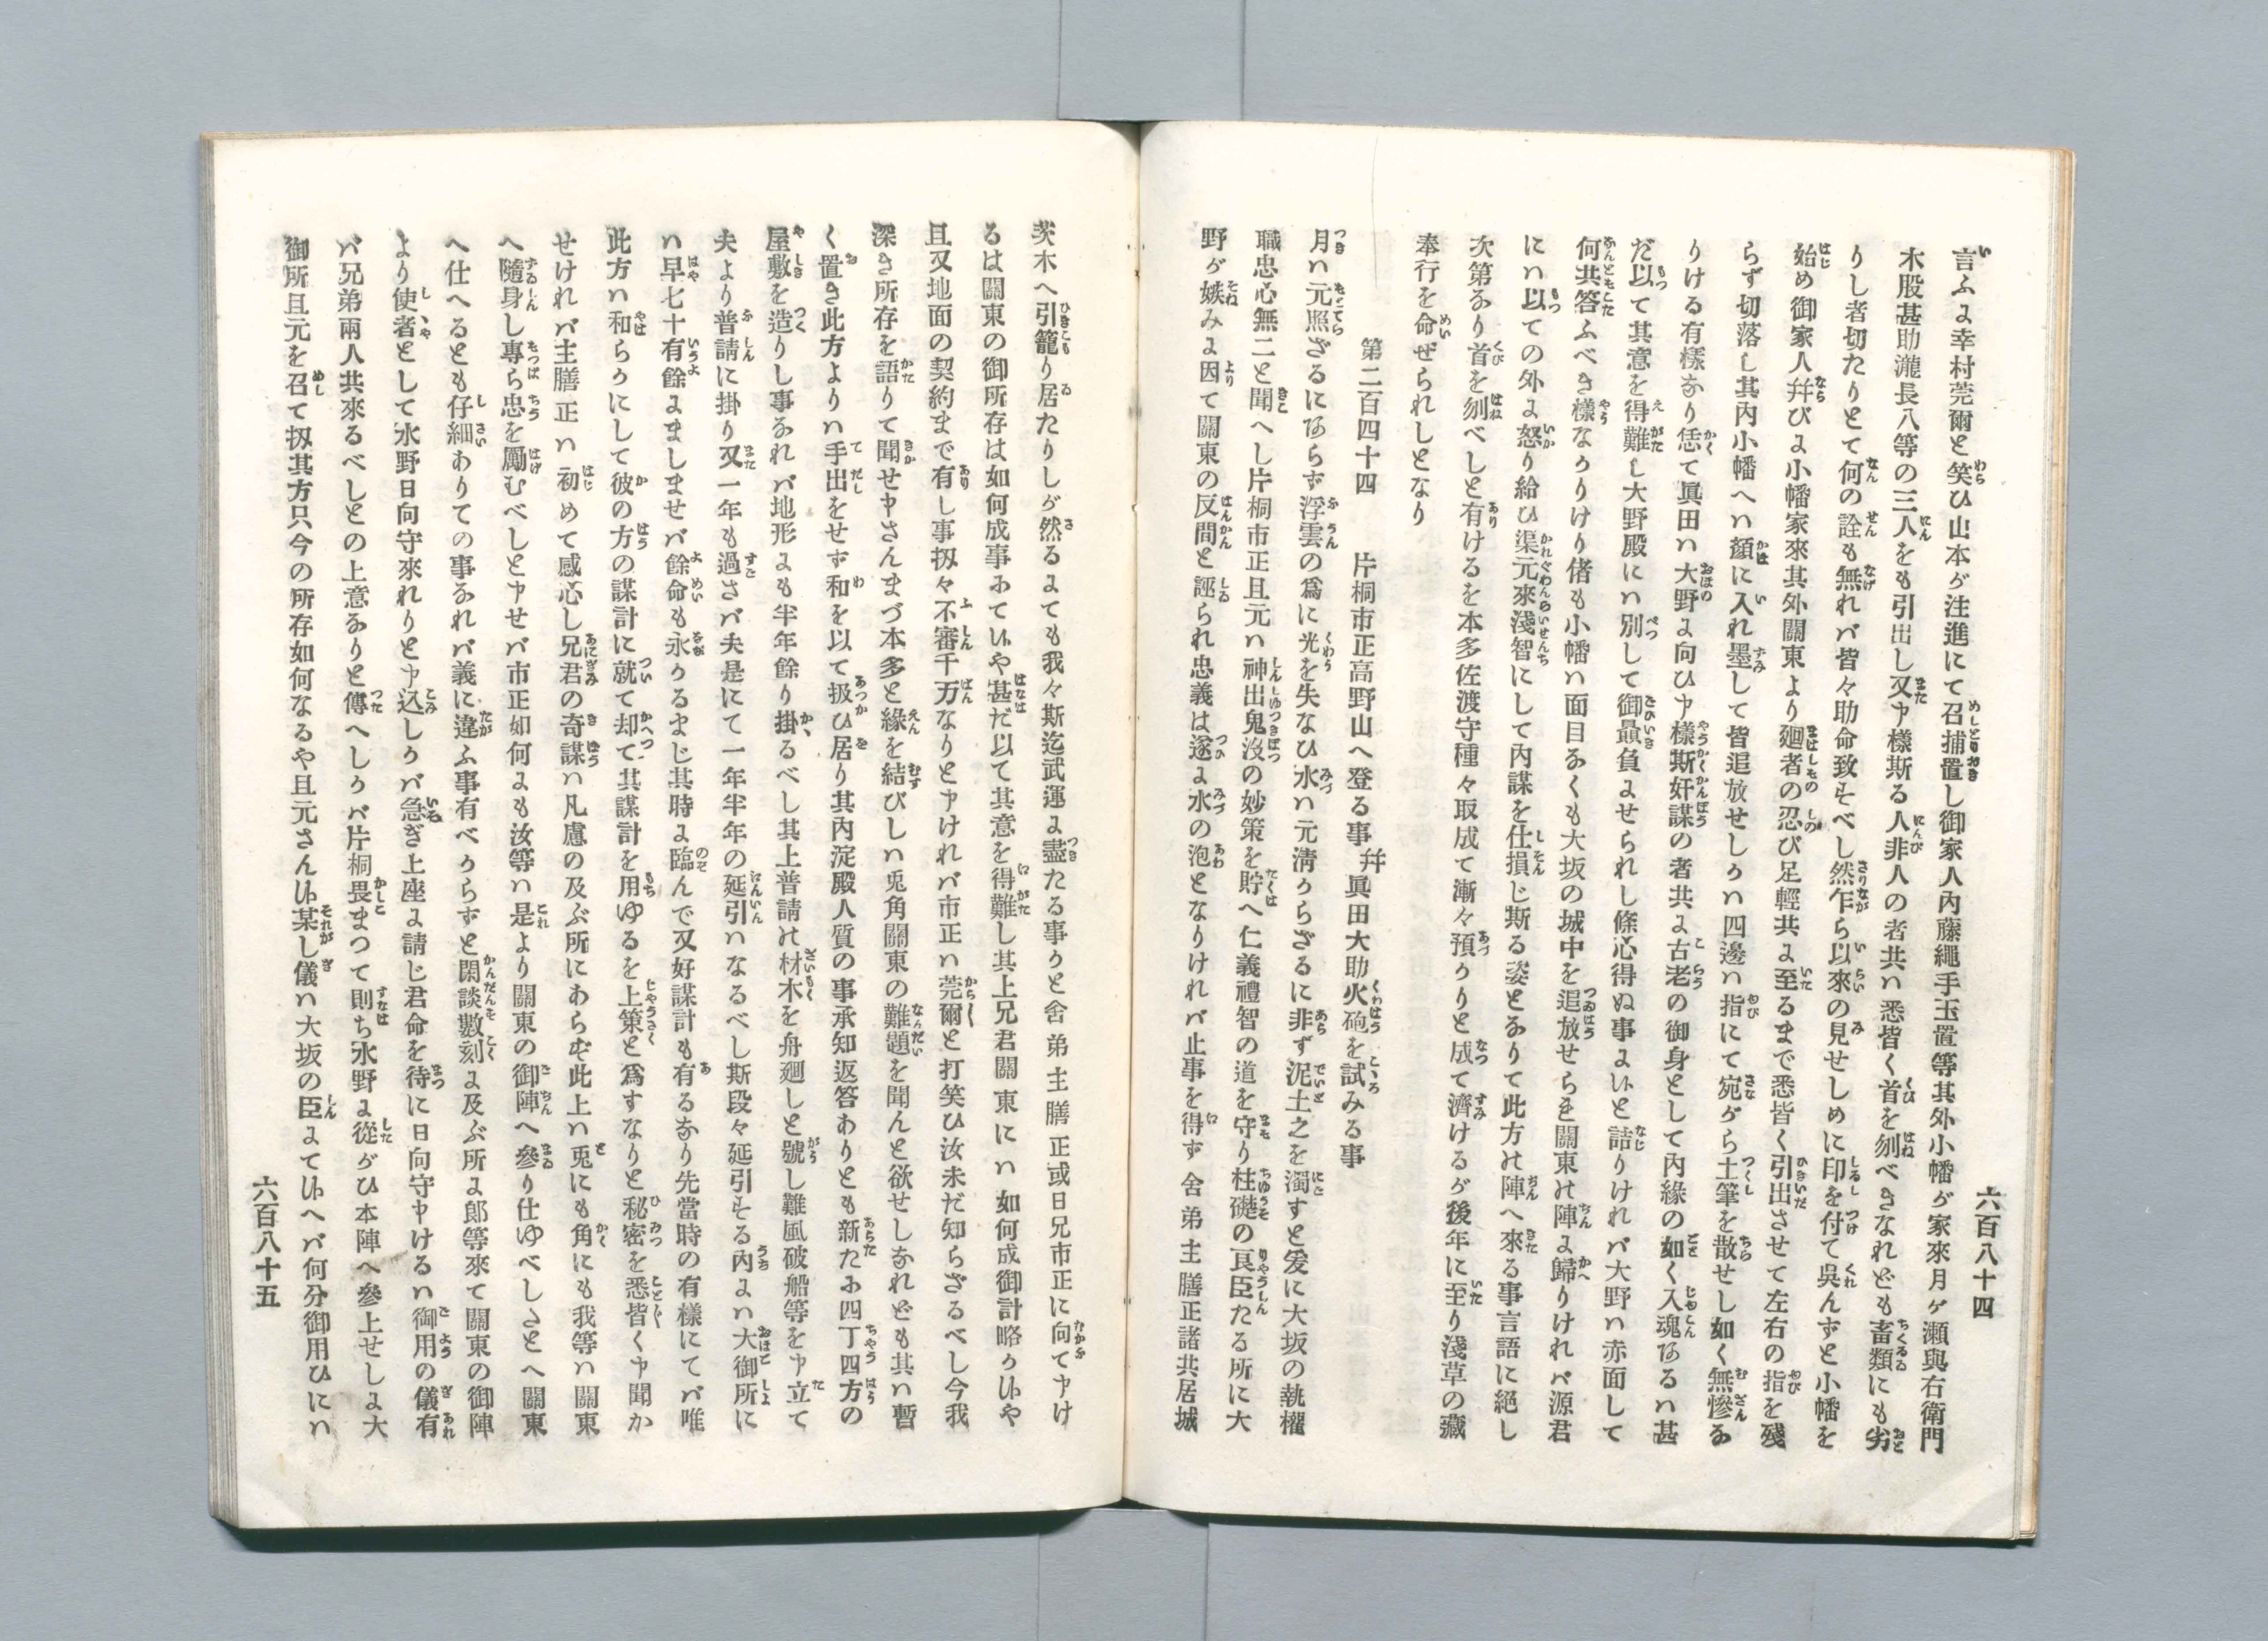 六百八十四
言ふよ幸村莞爾と笑ひ山本が注進にて召捕置し御家人內藤繩手玉置等其外小幡が家來月ヶ瀨與右衛門
木股甚助瀧長八等の三人をも引出し又申樣斯る人非人の者共ハ悉皆く首を刎べきなれども畜類にも劣
りし者切たりとて何の詮も無れバ皆々助命致すべし然乍ら以來の見せしめに印を付て吳んずと小幡を
始め御家人幷びよ小幡家來其外關東より廻者の忍び足輕共よ至るまで悉皆く引出させて左右の指を殘
らず切落し其內小幡へハ顏に入れ墨して皆追放せしかハ四邊ハ指にて宛がら土筆を散せし如く無慘な
りける有樣なり恁て眞田ハ大野よ向ひ申樣斯奸謀の者共よ古老の御身として內緣の如く入魂あるハ甚
だ以て其意を得難し大野殿にハ別して御贔負よせられし條心得ぬ事よいと詰りけれバ大野ハ赤面して
何共答ふべき樣なかりけり偖も小幡ハ面目なくも大坂の城中を追放せられ關東の陣よ歸りけれバ源君
にハ以ての外よ怒り給ひ渠元來淺智にして內謀を仕損じ斯る姿となりて此方の陣へ來る事言語に絕し
次第なり首を刎べしと有けるを本多佐渡守種々取成て漸々預かりと成て濟けるが後年に至り淺草の藏
奉行を命ぜられしとなり
第二百四十四　片桐市正高野山へ登る事幷眞田大助火砲を試みる事
月ハ元照ざるにあらず浮雲の爲に光を失なひ水ハ元清からざるに非ず泥土之を濁すと爰に大坂の執權
職忠心無二と聞へし片桐市正且元ハ神出鬼沒の妙策を貯へ仁義禮智の道を守り柱礎の良臣たる所に大
野が嫉みよ因て關東の反間と誣られ忠義は遂よ水の泡となりけれバ止事を得ず舍弟主膳正諸共居城
茨木へ引籠り居たりしが然るよても我々斯迄武運よ盡たる事かと舍弟主膳正或日兄市正に向て申け
るは關東の御所存は如何成事よていや甚だ以て其意を得難し其上兄君關東にハ如何成御計略かいや
且又地面の契約まで有し事扨々不審千万なりと申けれバ市正ハ莞爾と打笑ひ汝未だ知らざるべし今我
深き所存を語りて聞せ申さんまづ本多と緣を結びしハ兎角關東の難題を聞んと欲せしなれども其ハ暫
く置き此方よりハ手出をせず和を以て扱ひ居り其內淀殿人質の事承知返答ありとも新たよ四丁四方の
屋敷を造りし事なれバ地形よも半年餘り掛るべし其上普請の材木を舟廻しと號し難風破船等を申立て
夫より普請に掛り又一年も過さバ夫是にて一年半年の延引ハなるべし斯段々延引する內よハ大御所に
ハ早七十有餘よましませバ餘命も永かるまじ其時よ臨んで又好謀計も有るなり先當時の有樣にてバ唯
此方ハ和らかにして彼の方の謀計に就て却て其謀計を用ゆるを上策と爲すなりと秘密を悉皆く申聞か
せけれバ主膳正ハ初めて感心し兄君の奇謀ハ凡慮の及ぶ所にあらず此上ハ兎にも角にも我等ハ關東
へ隨身し專ら忠を勵むべしと申せバ市正如何よも汝等ハ是より關東の御陣へ參り仕ゆべしさとへ關東
へ仕へるとも仔細ありての事なれバ義に違ふ事有べからずと閑談數刻よ及ぶ所よ郎等來て關東の御陣
より使者として水野日向守來れりと申込しかバ急ぎ上座よ請じ君命を待に日向守申けるハ御用の儀有
バ兄弟兩人共來るべしとの上意なりと傳へしかバ片桐畏まつて則ち水野よ從がひ本陣へ參上せしよ大
御所且元を召て扨其方只今の所存如何なるや且元さんい某し儀ハ大坂の臣よていへバ何分御用ひにハ
六百八十五